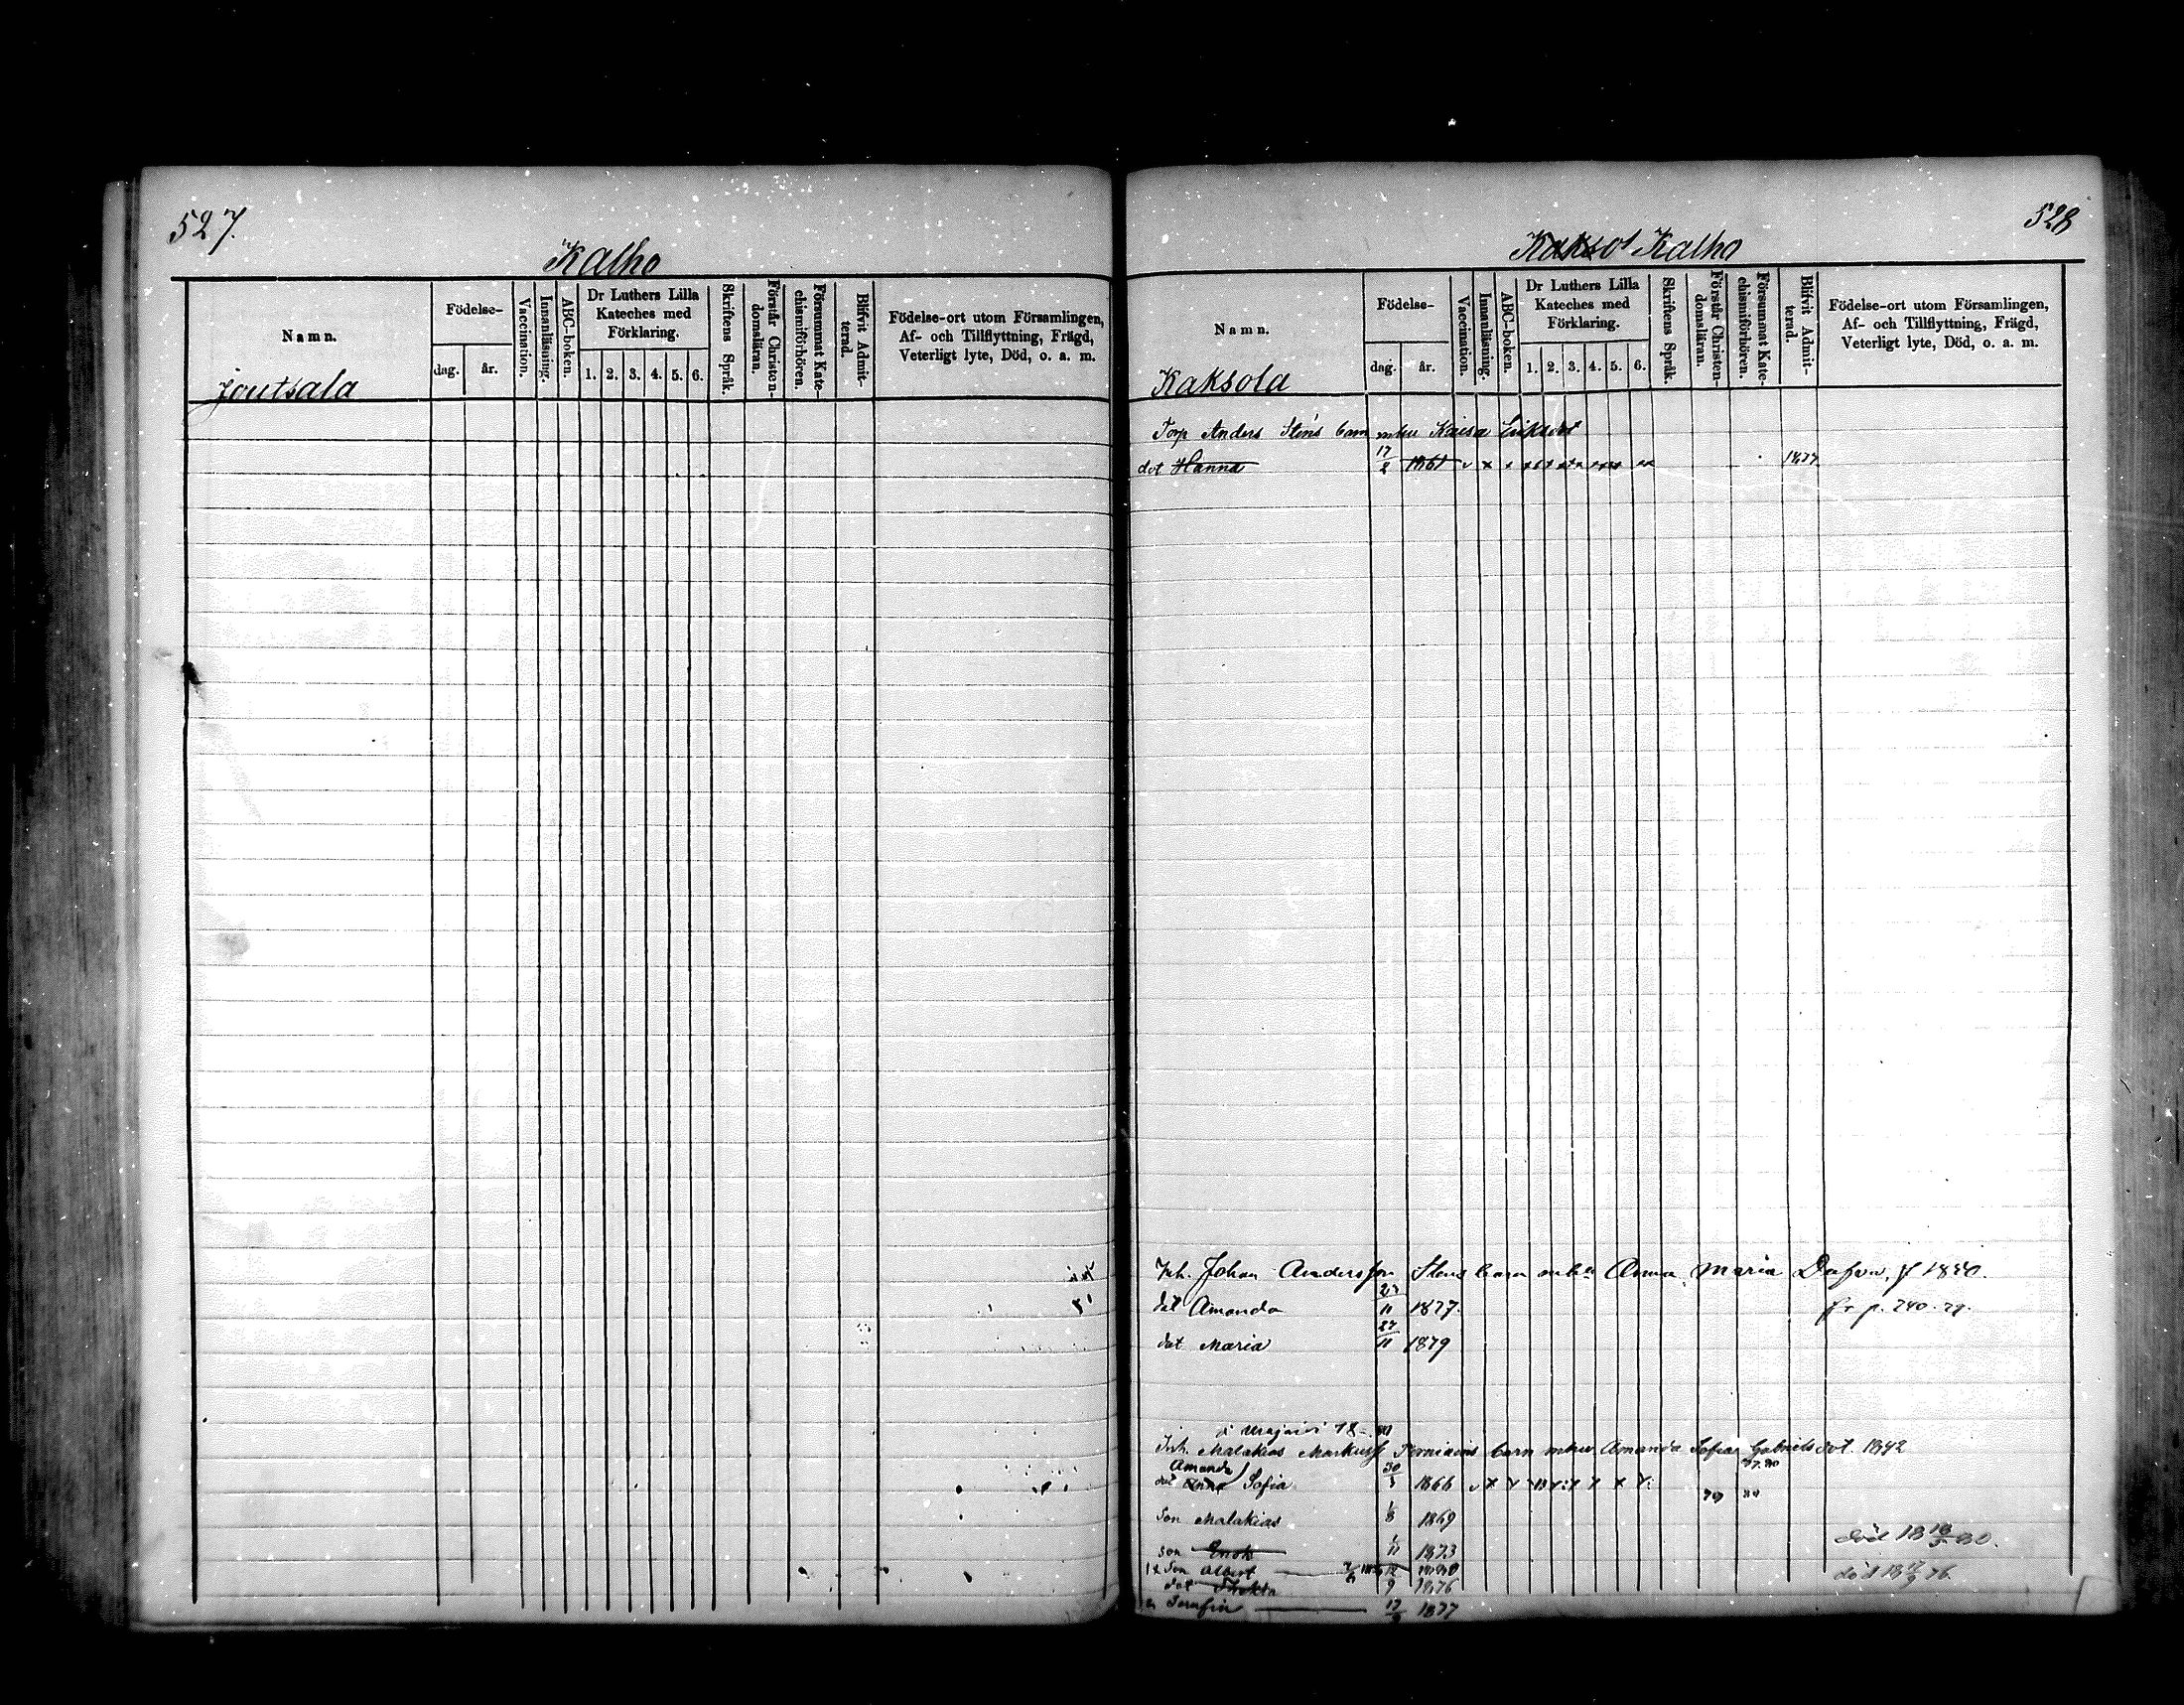 527.
Kalho
Namn.
Födelse-
dag.
år.
Vaccination.
Innanläsning.
ABC-boken.
Dr Luthers Lilla
Kateches med
Förklaring.
1. 2. 3. 4. 5. 6.
Skriftens Språk.
Förstår Christen-
domsläran.
Försummat Kate-
chismiförhören.
Blifvit Admit-
terad.
Födelse-ort utom Församlingen,
Af- och Tillflyttning, Frägd,
Veterligt lyte, Död, o. a. m.
Joutsala
528
Kalho
Namn.
Födelse-
dag.
år.
Vaccination.
Innanläsning.
ABC-boken.
Dr Luthers Lilla
Kateches med
Förklaring.
1. 2. 3. 4. 5. 6.
Skriftens Språk.
Förstår Christen-
domsläran.
Försummat Kate-
chismiförhören.
Blifvit Admit-
terad.
Födelse-ort utom Församlingen,
Af- och Tillflyttning, Frägd,
Veterligt lyte, Död, o. a. m.
Kaksola
Torp Anders Stens barn mhu Kaisa Eriksdot
dot Hanna 17/2 1861 1877
Inh. Johan Andersson Stens barn Anna Maria 1840.
dot Amanda 1877. fr p. 240. 79.
dot Maria 27/11 1879
Inh. Malakias barn mhu Amanda Sofia Gabrielsdot. 1842
Amanda
dot Anna Sofia 1866
Son Malakias 1/8 1869
son Enok 1/11 1873 död
Son Albert
dot 9 1876 död
1877